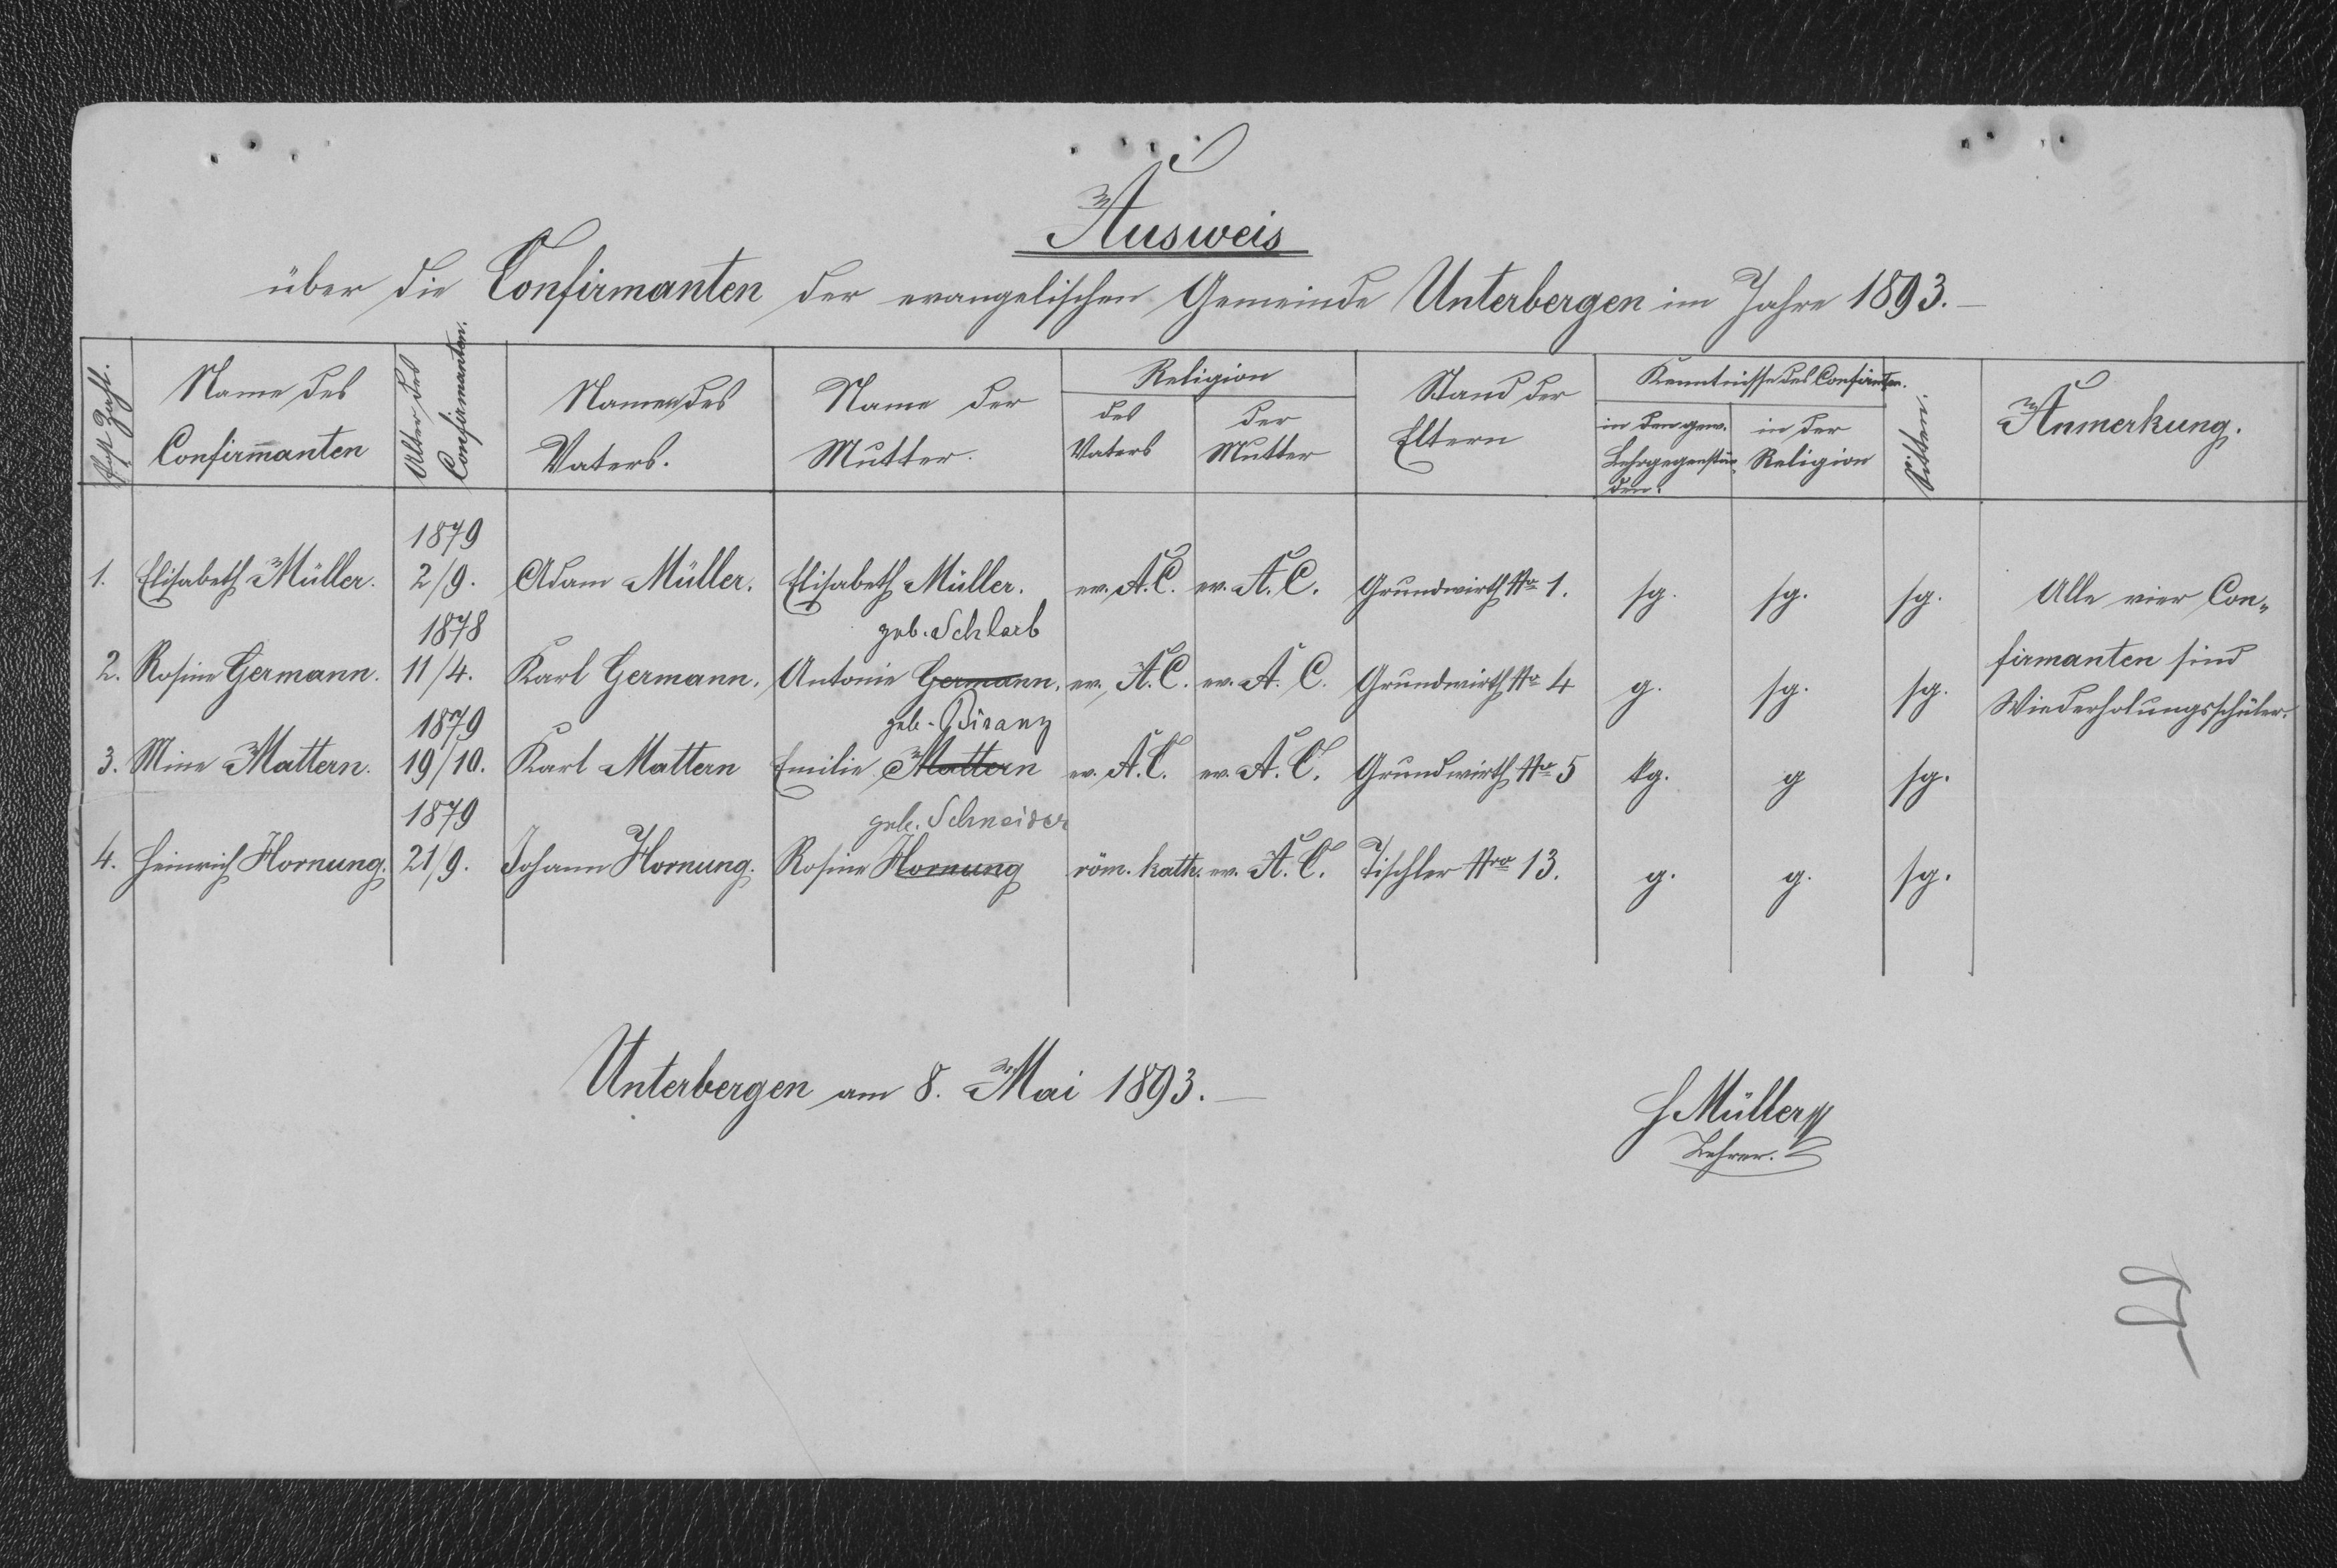 Ausweis
über die Confirmanten der evangelischen Gemeinde Unterbergen im Jahre 1893.
Post Zahl. Name des Confirmanten Alter des Confirmanten. Namen des Vaters. Name der Mutter. Religion des Vaters der Mutter Stand der Eltern Kenntnisse des Confirmten. in den gew. Lehrgegenstän- den. in der Religion Sitten. Anmerkung.
1879
1. Elisabeth Müller. 2/9. Adam Müller. Elisabeth Müller. ev. A.C. ev. A.C. Grundwirth No 1. sg. sg. sg. Alle vier Con-
1878 geb. Schlarb
2. Rosine Germann. 11/4. Karl Germann. Antonie Germann. ev. A.C. ev. A.C. Grundwirth No 4 g. sg. sg. firmanten sind
1879 geb. Biranz Wiederholungsschüler.
3. Mine Mattern. 19/10. Karl Mattern Emilie Mattern ev. A.C. ev. A.C. Grundwirth No 5 kg. g sg.
1879 geb. Schneider
4. Heinrich Hornung. 21/9. Johann Hornung. Rosine Hornung röm. kath. ev. A.C. Tischler Nro 13. g. g. sg.
Unterbergen am 8. Mai 1893.
H Müller
Lehrer.